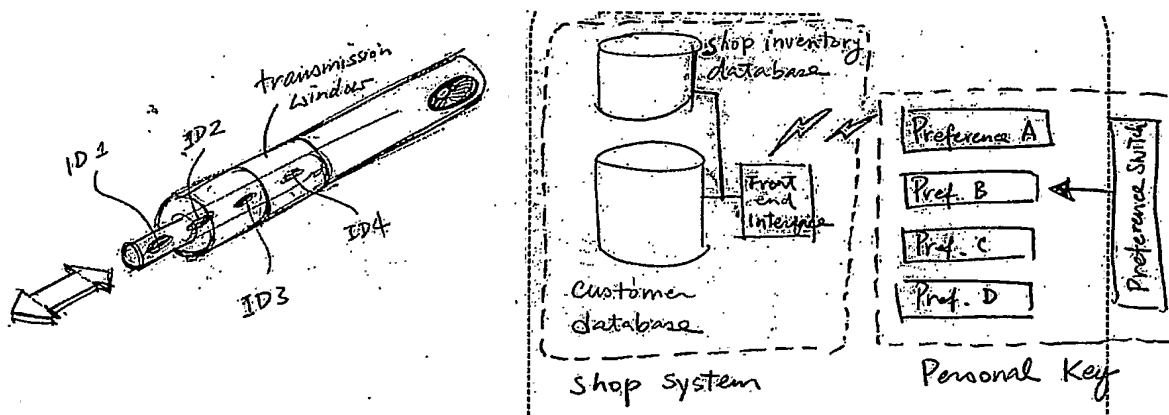 transmission
window
ID1
ID2
ID3
ID4
shop inventory
database
Front
end
Interface
customer
database
shop system
Preference A
Pref. B
Pref. C
Pref. D
Preference Switch
Personal Key